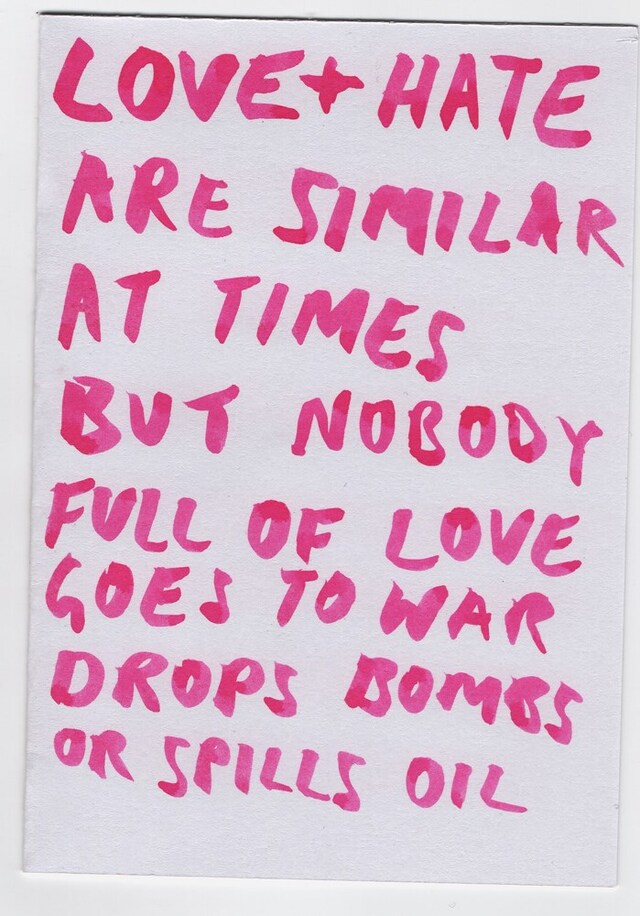 LOVE + HATE
ARE SIMILAR
AT TIMES
BUT NOBODY
FULL OF LOVE
GOES TO WAR
DROPS BOMBS
OR SPILLS OIL